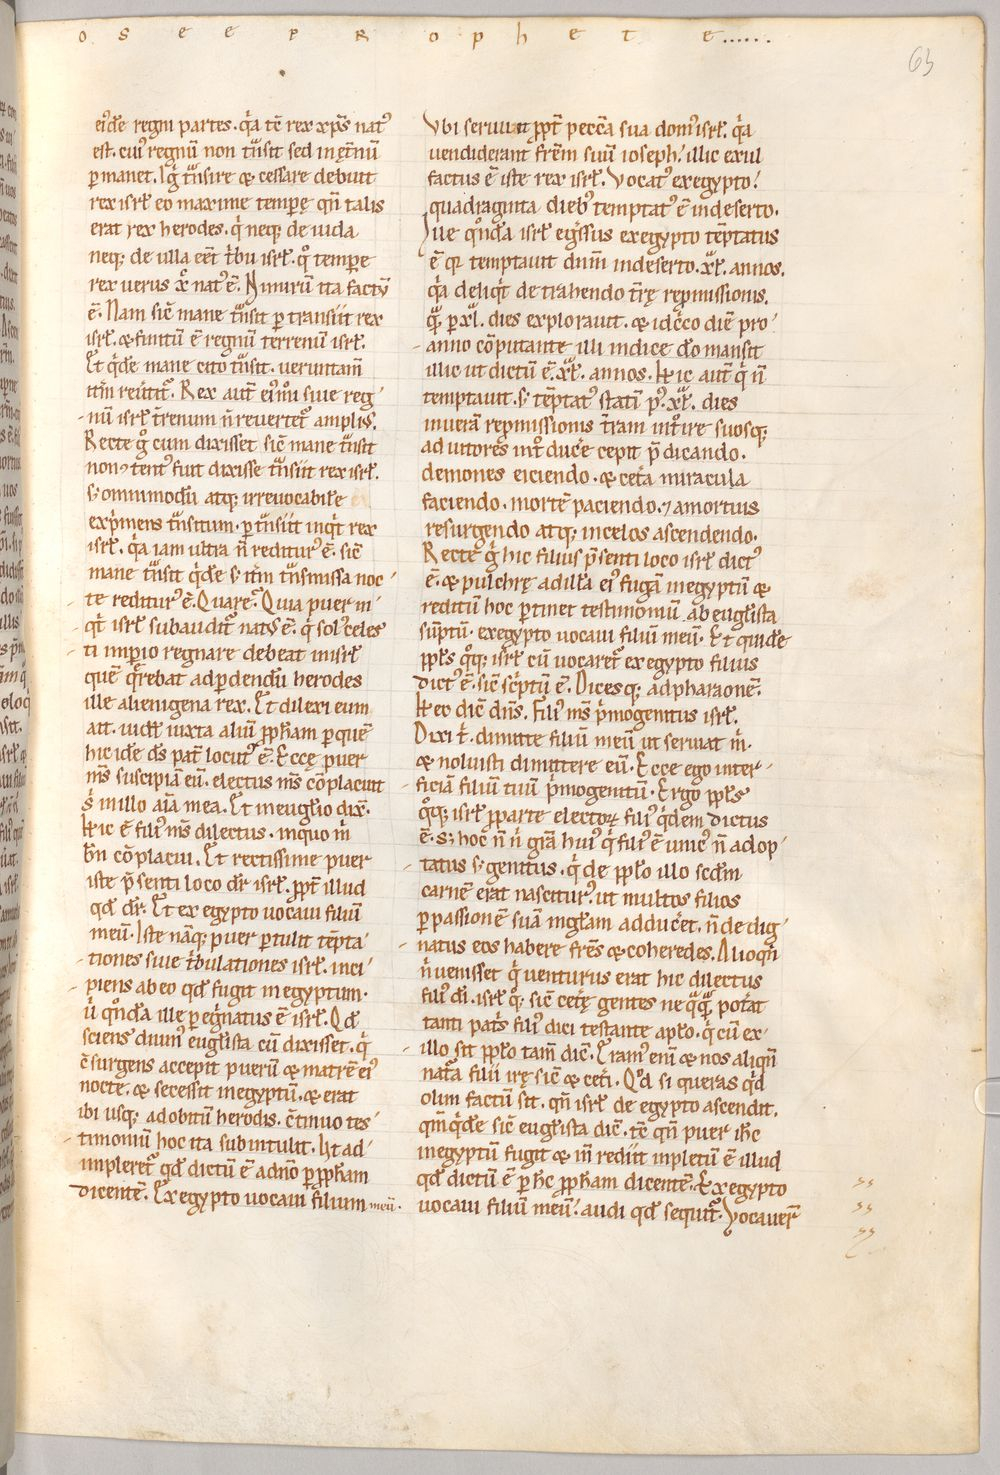 o s e e p R o p h e t e ......
63
ei'dē regni partes. q̇a tē rex xp̄s nat'
est. cui' regnū non tͣnsit sed in ęt̄nū
p̱manet. Igͥ tͣnsire & cessare debuit
rex isrł eo maxime tempe̱ qn̄ talis
erat rex herodes. qͥ neq; de iuda
neq; de illa eēt tͥbu isrł. qͦ tempe̱
rex uerus xp̄c nat' ē. Nimirū ita factū
ē. Nam sic̄ mane tͣnsit p̱transiit rex
isrł. & finitū ē regnū terrenū isrł.
Et qͥdē mane cito tͣnsit. ueruntam̄
itm̄ reūtit᷑. Rex aut̄ ei' siue reg-
nū isrł t̄renum n̄ reuertet᷑ amplis'.
Recte gͦ cum dixisset sic̄ mane tͣnsit
non tent' fuit dixisse tͣnsiit rex isrł.
s; omnimodū atq; irreuocabile
exp̄mens tͣnsitum. p̱tͣnsiit inqͥt rex
isrł. qͥa iam ultra n̄ reditur' ē. sic̄
mane tͣnsit qͥdē s; itm̄ tͣnsmissa noc-
te reditur' ē. Quare? Quia puer in-
qͥt isrł subaudit᷑ nat' ē. qͥ sol' celes-
ti imperio regnare debeat in isrł
quē qͣrebat ad perdendū herodes
ille alienigena rex. Et dilexi eum
ait. uidel̄ iuxta aliū pp̄ham p̱ quē
hic idē ds̄ pat̄ locut' ē. Eccę puer
ms̄ suscipiā eū. electus ms̄ cōplacuit
s̄ in illo aīa mea. Et in euglio dix̄.
Hic ē fili' ms̄ dilectus. in quo m̄
bn̄ cōplacui. Et rectissime puer
iste p̄senti loco dr̄ isrł. ppt̄ illud
qd̄ dr̄. Et ex egypto uocaui filiū
meū. Iste nāq; puer p̱tulit tēpta-
tiones siue tͥbulationes isrł. inci-
piens ab eo qd̄ fugit in egyptum.
u̇ qͦndā ille p̱egͥnatus ē isrł. Qd̄
sciens diuin' eugłista cū dixisset. qͥ
c̄surgens accepit puerū & matrē ei'
nocte. & secessit in egyptū. & erat
ibi usq; ad obitū herodis. c̄tinuo tes-
timoniū hoc ita subintulit. Ut ad-
impleret᷑ qd̄ dictū ē a dn̄o p̱ pp̄ham
dicentē. Ex egypto uocaui filium meū.
Vbi seruiuit ppt̄ pecc̄a sua dom' isrł. qͥa
uendiderant frēm suū ioseph. illic exul
factus ē iste rex isrł. Vocat' ex egypto.
quadraginta dieb' temptat' ē in deserto.
Ille qͦndā isrł egressus ex egypto tēptatus
ē qͥ temptauit dnm̄ in deserto. xͭͣl. annos.
qͥa deliqͥt detrahendo t̄rę repmissionis.
qͣ p̱ xl. dies explorauit. & idcͥco diē pro
- anno cōputante illi iudice dō mansit
illic ut dictū ē. xl. annos. Hic aut̄ qͥ n̄
temptauit. s; tēptat' statī p' xl. dies
in uerā repmissionis t̄ram intͦire suosq;
adiutores intͦducere cepit p̄dicando.
demones eiciendo. & cet̄a miracula
faciendo. mortē paciendo. 7 a mortuis
resurgendo atq; in celos ascendendo.
Recte gͥ hic filius p̄senti loco isrł dict'
ē. & pulchrę ad illā ei' fugā in egyptū &
reditū hoc p̱tinet testimoniū ab eugłista
sūptū. ex egypto uocaui filiū meū. Et quidē
pp̄ls qͦq; isrł cū uocaret᷑ ex egypto filius
dict' ē. sic̄ sc̄ptū ē. Dicesq; ad pharaonē.
Hec dic̄ dn̄s. Fili' ms̄ p̄mogenitus isrł.
Dixi tͥ. dimitte filiū meū ut seruiat m̄.
& noluisti dimittere eū. Ecce ego inter-
ficiā filiū tuū p̄mogenitū. Ergo pp̄ls
qͦq; isrł p parte electoꝝ fili' qͥdem dictus
ē. s; hoc n̄ n̄ grā hui' qͥ fili' ē unic' n̄ adop-
tatus s; genitus. qͥ de pp̄lo illo scd̄m
carnē erat nascitur'. ut multos filios
p̱ passionē suā in gl̄am adduc̄et. n̄ dedig-
natus eos habere fr̄s & coheredes. Alioqͥn
n̄ uenisset qͥ uenturus erat hic dilectus
fili' dī. isrł qͦ; sic̄ cet̄ę gentes ne qͣqͣ pot̄at
tanti pat̄s fili' dici testante apło. qͥ cū ex
- illo sit pp̄lo tam̄ dic̄. Eram' eni & nos aliqn̄
nat̄a filii irę sic̄ & cet̄i. Qͦd si queras qͥd
olim factū sit. qn̄ isrł de egypto ascendit.
qm̄ qͥdē sic̄ eugłista dic̄. tc̄ qn̄ puer ih̄c
in egyptū fugit & in̄ rediit inpletū ē illud
qd̄ dictū ē p̱ hc̄ pp̄ham dicentē. Ex egypto
uocaui filiū meū. audi qd̄ sequit᷑. Vocauer̄